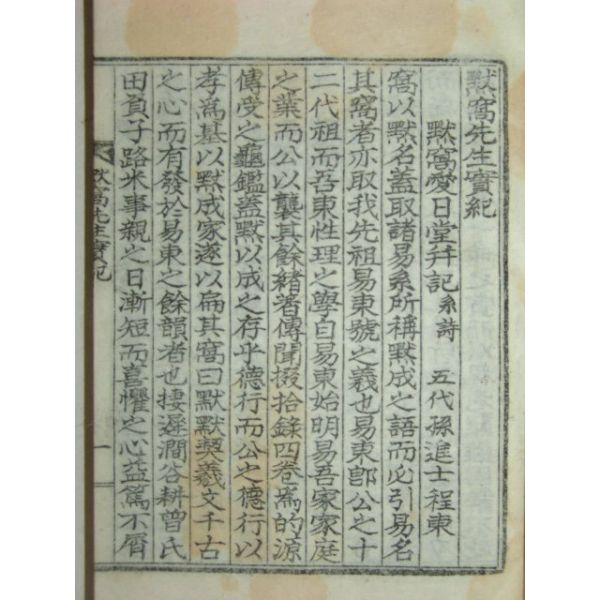 默窩先生實紀
默窩愛日堂幷記 系詩 五代孫進士程東
窩以默名蓋取諸易系所稱默成之語而必引易名
其窩者亦取我先祖易東號之義也易東卽公之十
二代祖而吾東性理之學自易東始明易吾家家庭
之葉而公以襲其餘緖著傳聞掇拾錄四卷爲的源
傳受之龜鑑蓋默以成之存乎德行而公之德行以
孝爲基以默成家遂以扁其窩曰默默契羲文千古
之心而有發於易東之餘韻者也捿遲澗谷耕曾氏
田負子路米事親之日漸短而喜懼之心益篤不屑
默窩先生實紀
一